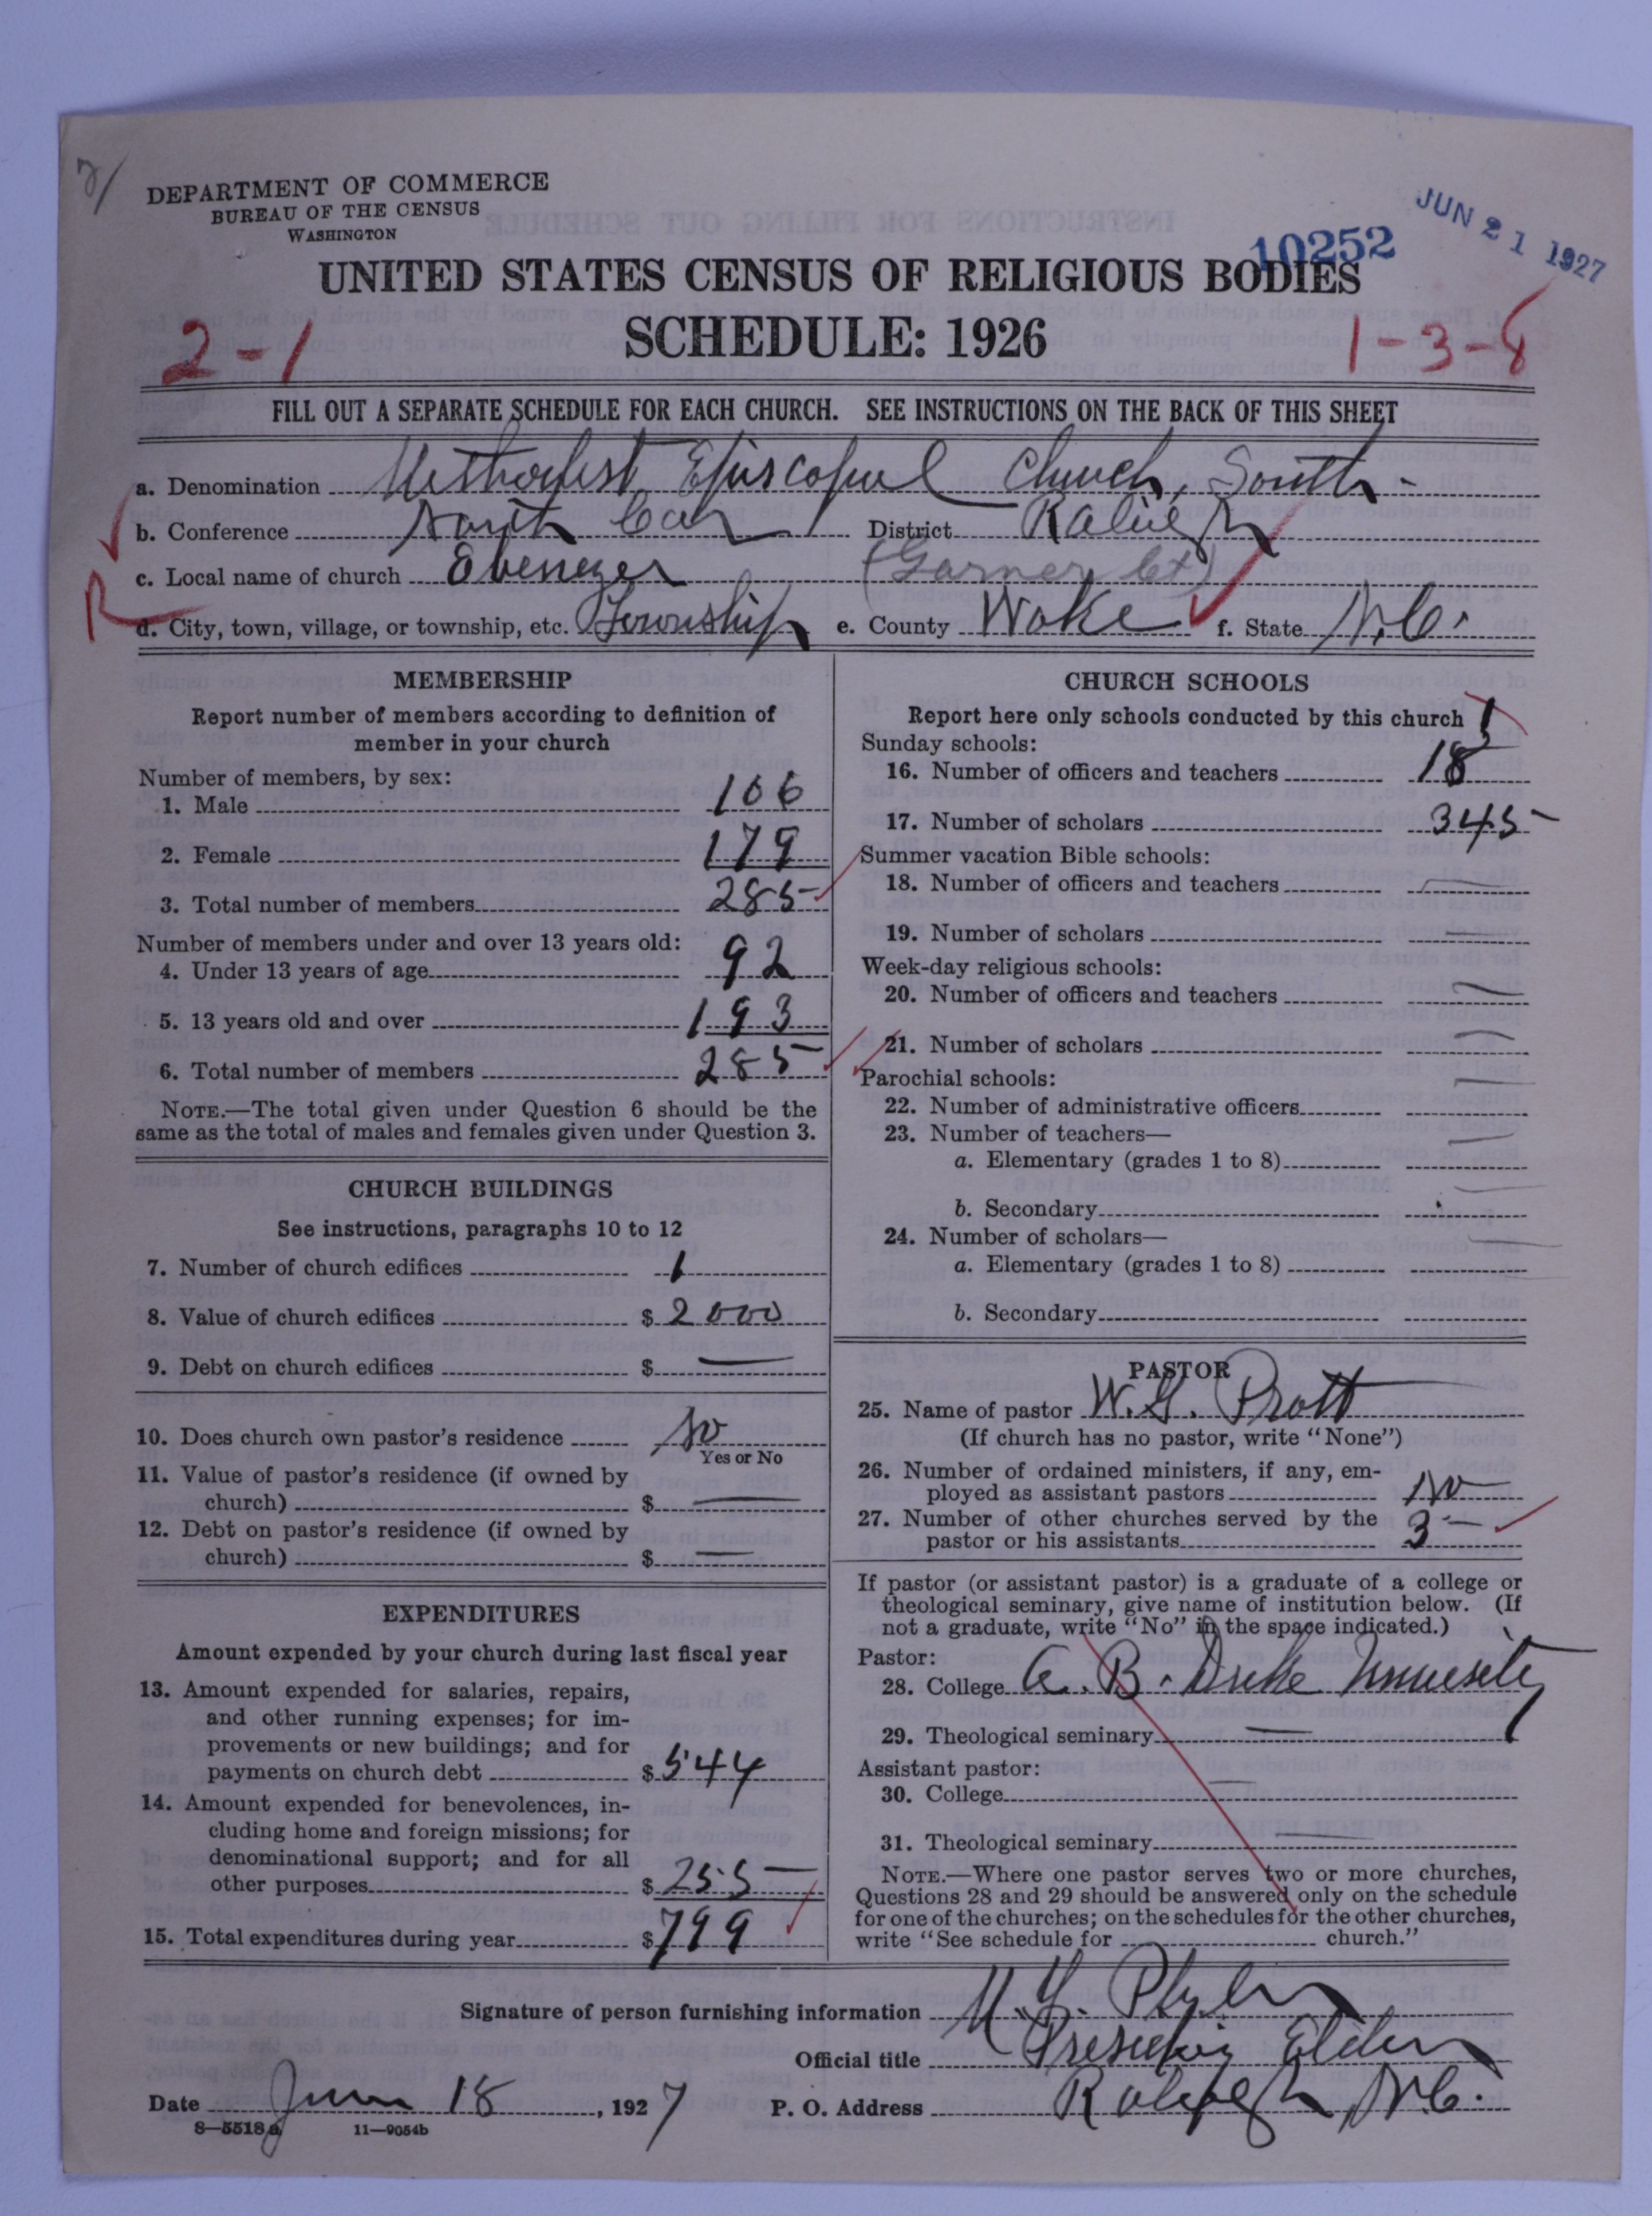 7/
DEPARTMENT OF COMMERCE
BUREAU OF THE CENSUS
WASHINGTON
JUN 21 1927
10252
UNITED STATES CENSUS OF RELIGIOUS BODIES
2-1
SCHEDULE: 1926
1-3-8
FILL OUT A SEPARATE SCHEDULE FOR EACH CHURCH. SEE INSTRUCTIONS ON THE BACK OF THIS SHEET
a. Denomination Methodist Episcopal Church, South-
b. Conference North Car District Raleigh
c. Local name of church Ebenezer (Garner Ct)
R
d. City, town, village, or township, etc. Township e. County Wake f. State N.C.
MEMBERSHIP
Report number of members according to definition of
member in your church
Number of members, by sex:
1. Male 106
2. Female 179
3. Total number of members 285
Number of members under and over 13 years old:
4. Under 13 years of age 92
5. 13 years old and over 193
6. Total number of members 285
NOTE.—The total given under Question 6 should be the
same as the total of males and females given under Question 3.
CHURCH BUILDINGS
See instructions, paragraphs 10 to 12
7. Number of church edifices 1
8. Value of church edifices $ 2000
9. Debt on church edifices $ —
10. Does church own pastor's residence No
Yes or No
11. Value of pastor's residence (if owned by
church) $ —
12. Debt on pastor's residence (if owned by
church) $ —
EXPENDITURES
Amount expended by your church during last fiscal year
13. Amount expended for salaries, repairs,
and other running expenses; for im-
provements or new buildings; and for
payments on church debt $ 544
14. Amount expended for benevolences, in-
cluding home and foreign missions; for
denominational support; and for all
other purposes $ 255
15. Total expenditures during year $ 799
CHURCH SCHOOLS
Report here only schools conducted by this church 1
Sunday schools:
16. Number of officers and teachers 18
17. Number of scholars 345
Summer vacation Bible schools:
18. Number of officers and teachers —
19. Number of scholars —
Week-day religious schools:
20. Number of officers and teachers —
21. Number of scholars —
Parochial schools:
22. Number of administrative officers —
23. Number of teachers—
a. Elementary (grades 1 to 8) —
b. Secondary —
24. Number of scholars—
a. Elementary (grades 1 to 8) —
b. Secondary
PASTOR
25. Name of pastor W.G. Pratt
(If church has no pastor, write "None")
26. Number of ordained ministers, if any, em-
ployed as assistant pastors No
27. Number of other churches served by the
pastor or his assistants 3
If pastor (or assistant pastor) is a graduate of a college or
theological seminary, give name of institution below. (If
not a graduate, write "No" in the space indicated.)
Pastor:
28. College A. B. Duke University
29. Theological seminary —
Assistant pastor:
30. College —
31. Theological seminary —
NOTE.—Where one pastor serves two or more churches,
Questions 28 and 29 should be answered only on the schedule
for one of the churches; on the schedules for the other churches,
write "See schedule for church."
Signature of person furnishing information M.T. Plyler
Official title Presiding Elder
Date June 18, 1927 P. O. Address Raleigh, N.C.
8—5518a 11—9054b